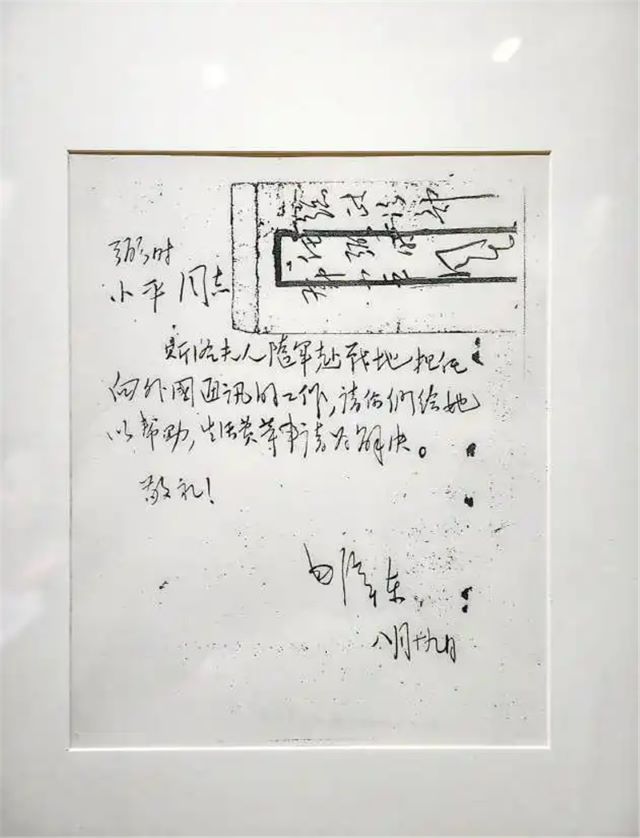 弼时
小平同志
斯诺夫人随军赴战地担任
向外国通讯的工作,请你们给她
以帮助,生活费等事请为解决。
敬礼!
毛泽东
八月十九日